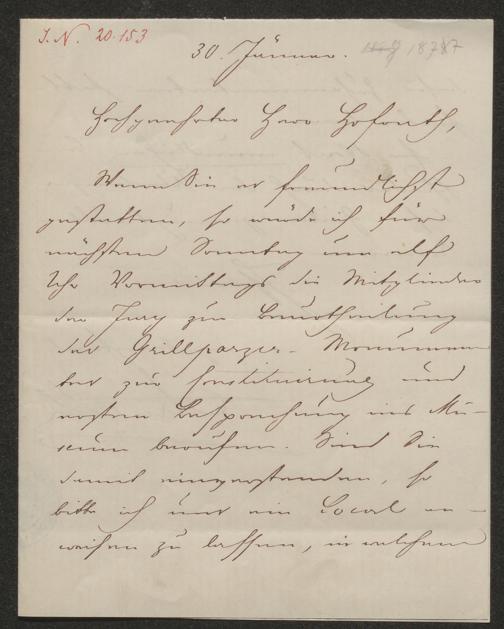 J. N. 20.153
30. Jänner. 1877
Hochgeehrter Herr Hofrath,
Wenn Sie es freundlichst
gestatten, so würde ich für
nächsten Sonntag um elf
Uhr Vormittags die Mitglieder
der Jury zur Beurtheilung
der Grillparzer-Monumen-
ten zur Constituirung und
ersten Besprechung ins Mu-
seum berufen. Sind Sie
damit einverstanden, so
bitte ich uns ein Local an-
weisen zu lassen, in welchem